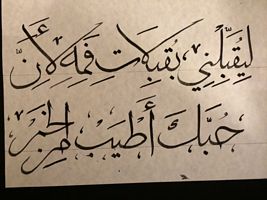 لِيُقَبِّلَنِي بقُبلَاتِ فَمِهِ لأَنَّ
حُبَّكَ أَطيَب مِن الخَمر